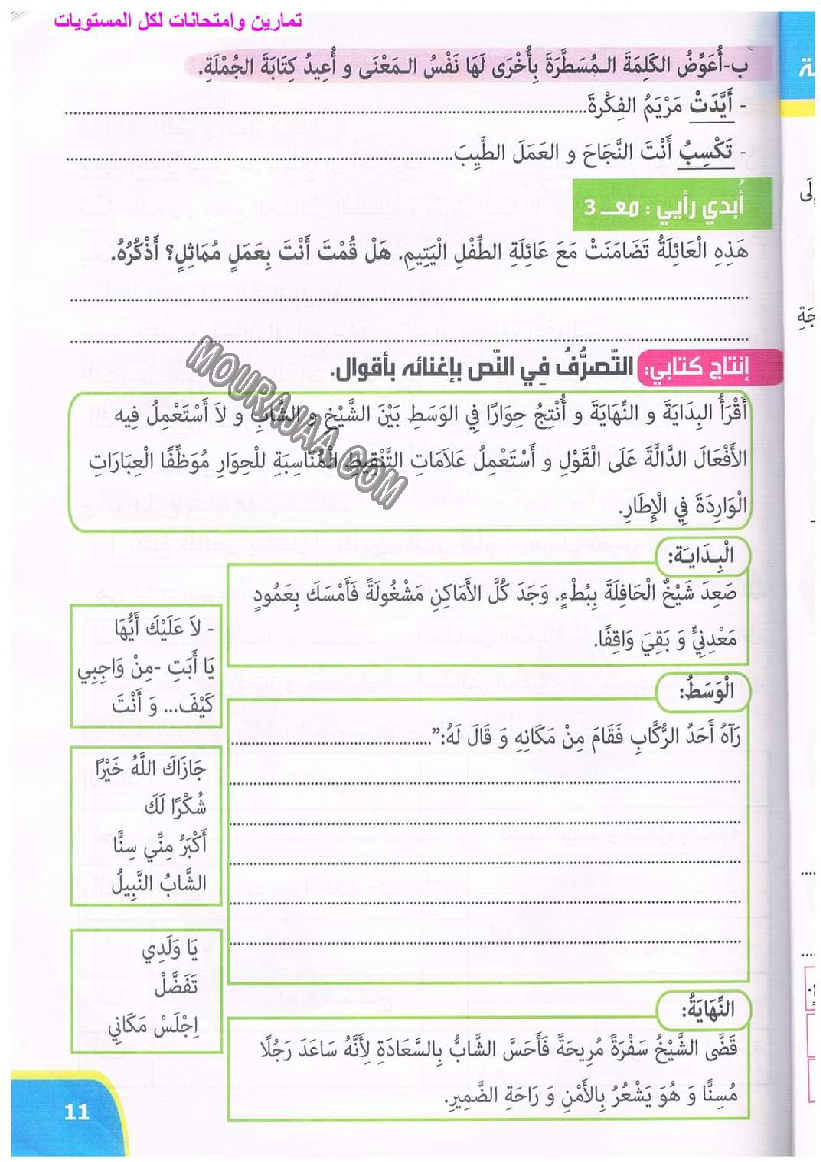 تمارين وامتحانات لكل المستويات
ب-أُعَوِّضُ الكَلِمَةَ الـمُسَطَّرَةَ بِأُخْرَى لَهَا نَفْسُ الـمَعْنَى و أُعِيدُ كِتَابَةَ الجُمْلَةِ.
- أَيَّدَتْ مَرْيَمُ الفِكْرَةَ
- تَكْسِبُ أَنْتَ النَّجَاحَ و العَمَلَ الطَّيِّبَ
أُبدي رأيي : معـ 3
هَذِهِ الْعَائِلَةُ تَضَامَنَتْ مَعَ عَائِلَةِ الطِّفْلِ الْيَتِيمِ. هَلْ قُمْتَ أَنْتَ بِعَمَلٍ مُمَاثِلٍ؟ أَذْكُرُهُ.
إنتاج كتابي: التّصرُّفُ فِي النّص بإغنائه بأقوال.
أَقْرَأُ البِدَايَةَ و النِّهَايَةَ و أُنْتِجُ حِوَارًا فِي الوَسَطِ بَيْنَ الشَّيْخِ و الشَّابِ و لاَ أَسْتَعْمِلُ فِيه
الأَفْعَالَ الدَّالَّةَ عَلَى الْقَوْلِ و أَسْتَعْمِلُ عَلاَمَاتِ التَّنْقِيطِ الْمُنَاسِبَةِ لِلْحِوَارِ مُوَظِّفًا الْعِبَارَاتِ
الْوَارِدَةَ فِي الْإِطَارِ.
الْبِـدَايَـة:
صَعِدَ شَيْخٌ الْحَافِلَةَ بِبُطْءٍ. وَجَدَ كُلَّ الأَمَاكِنِ مَشْغُولَةً فَأَمْسَكَ بِعَمُودٍ
مَعْدِنِيٍّ وَ بَقِيَ وَاقِفًا.
الْوَسَطُ:
رَآهُ أَحَدُ الرُّكَّابِ فَقَامَ مِنْ مَكَانِهِ وَ قَالَ لَهُ:"
- لاَ عَلَيْكَ أَيُّهَا
يَا أَبَتِ -مِنْ وَاجِبِي
كَيْفَ... وَ أَنْتَ
جَازَاكَ اللَّهُ خَيْرًا
شُكْرًا لَكَ
أَكْبَرُ مِنِّي سِنًّا
الشَّابُ النَّبِيلُ
يَا وَلَدِي
تَفَضَّلْ
اِجْلَسْ مَكَانِي
النِّهَايَةُ:
قَضَّى الشَّيْخُ سَفْرَةً مُرِيحَةً فَأَحَسَّ الشَّابُّ بِالسَّعَادَةِ لِأَنَّهُ سَاعَدَ رَجُلًا
مُسِنًّا وَ هُوَ يَشْعُرُ بِالأَمْنِ وَ رَاحَةِ الضَّمِيرِ.
11
MOURAJAA.COM